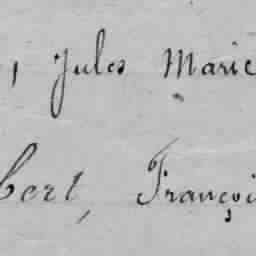 , Jules Marie
bert, Françoi